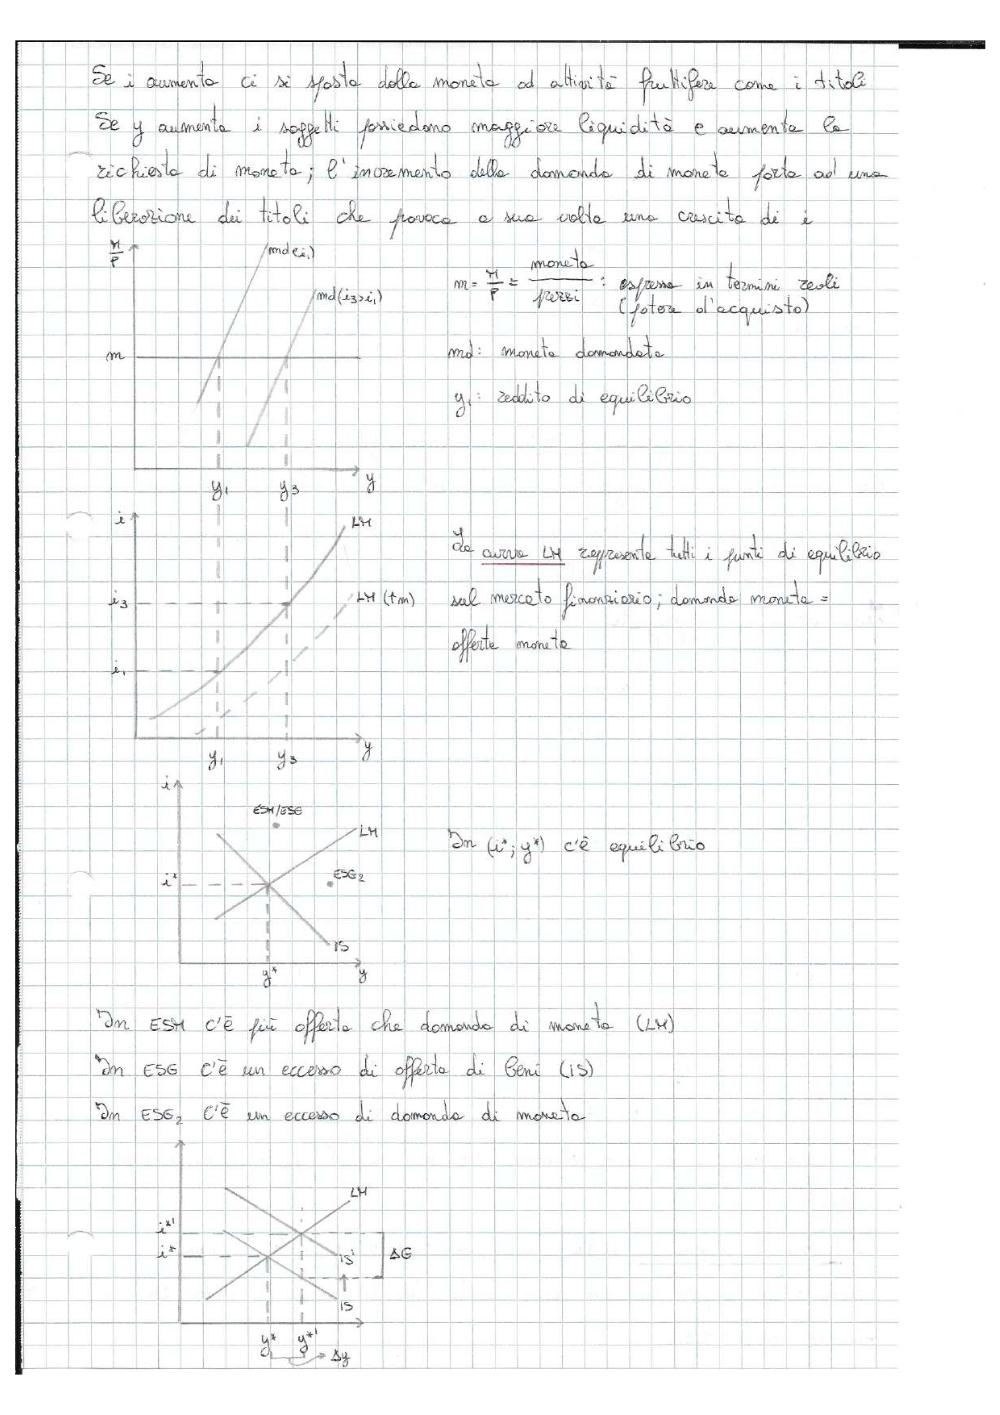 Se i aumenta ci si sposta dalla moneta ad attività fruttifere come i titoli
Se y aumenta i soggetti possiedono maggiore liquidità e aumenta la
richiesta di moneta; l'incremento della domanda di moneta porta ad una
liberazione dei titoli che provoca a sua volta una crescita di i
M/P
md(i₁)
md(i₃>i₁)
m
y₁ y₃ y
m = M/P = moneta/prezzi : espressa in termini reali
(potere d'acquisto)
md: moneta domandata
y₁: reddito di equilibrio
i
LM
i₃
LM (↑m)
i₁
y₁ y₃ y
La curva LM rappresenta tutti i punti di equilibrio
sul mercato finanziario; domanda moneta =
offerta moneta
i
ESM/ESG
LM
i*
ESG₂
IS
y* y
In (i*; y*) c'è equilibrio
In ESM c'è più offerta che domanda di moneta (LM)
In ESG c'è un eccesso di offerta di beni (IS)
In ESG₂ c'è un eccesso di domanda di moneta
LM
i*'
i*
IS'
ΔG
IS
y* y*'
Δy